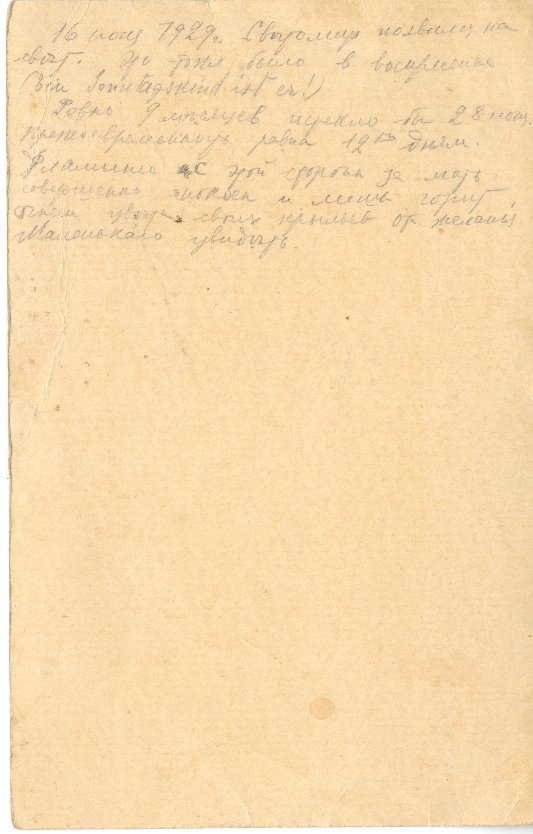 16 июня 1929г. Святомир появился на
свѣт. Это тоже было в воскресенье
(Ein Sonntagskind ist er!)
Ровно 9 мѣсяцев истекло бы 28 июня.
Преждевременность равна 12ти дням.
Фламинго с этой стороны за мать
совершенно спокоен и лишь горит
огнем своих крыльев от желанья
Маленькаго увидѣть.